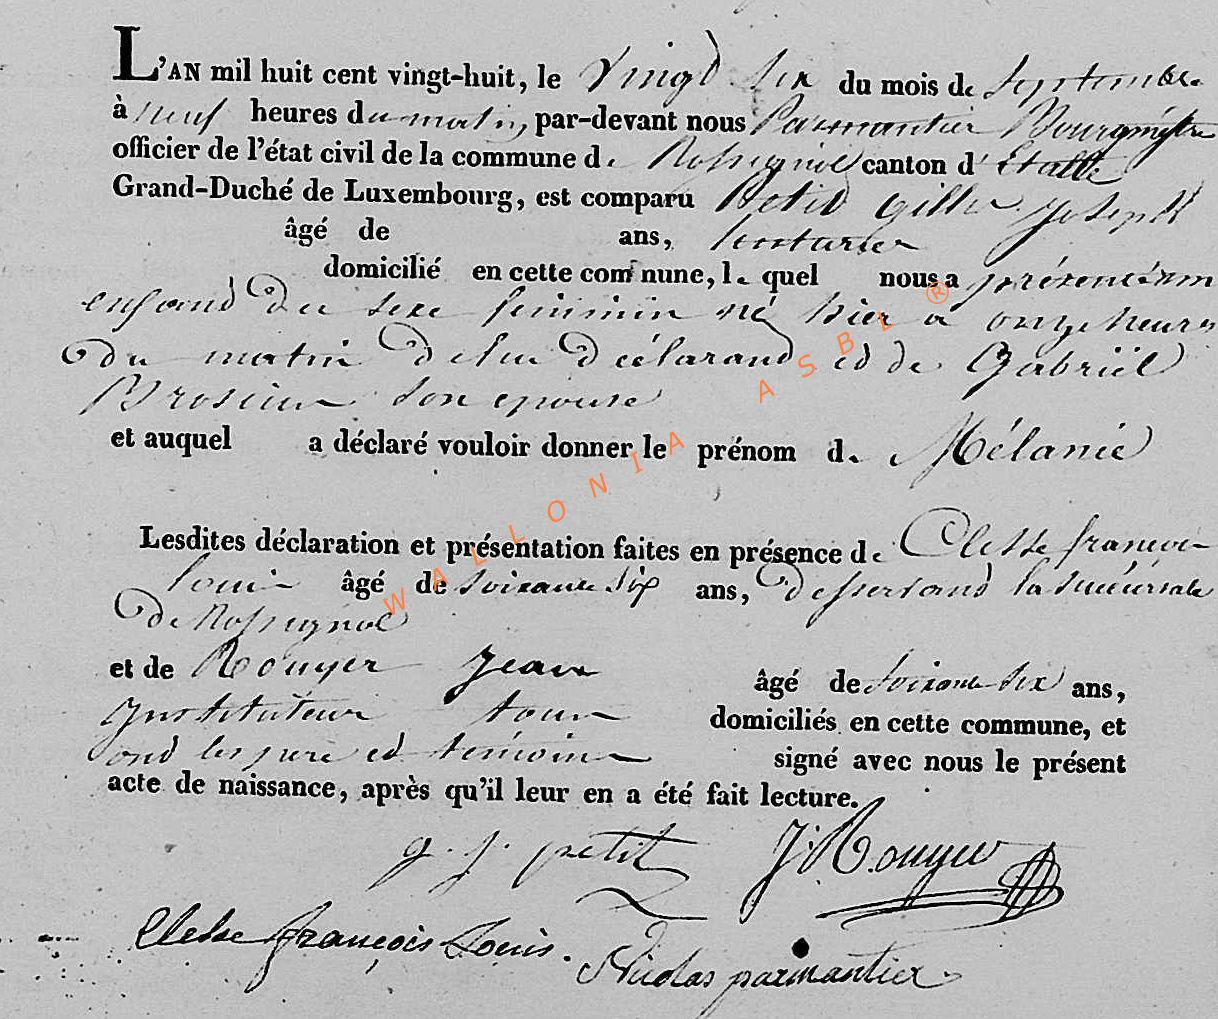 L'AN mil huit cent vingt-huit, le vingt six du mois de Septembre
à neuf heures du matin, par-devant nous Parmantier Bourgmestre
officier de l'état civil de la commune de Rossignol canton d'Etalle
Grand-Duché de Luxembourg, est comparu Petit Gilles Joseph
âgé de ans,
domicilié en cette commune, lequel nous a présenté un
enfand du sexe feminin né hier a onze heures
du matin de lui déclarand et de Gabriël
Brosius son epouse
et auquel a déclaré vouloir donner le prénom de Mélanie
Lesdites déclaration et présentation faites en présence de Clesse françois
louis âgé de soixante six ans, desservand la succursale
de Rossignol
et de Rouyer Jean âgé de soixante six ans,
Instituteur tous domiciliés en cette commune, et
ond les pere et temoins signé avec nous le présent
acte de naissance, après qu'il leur en a été fait lecture.
g. j. petit J. Rouyer
Clesse françois Louis.
Nicolas parmantier
WALLONIA ASBL ®